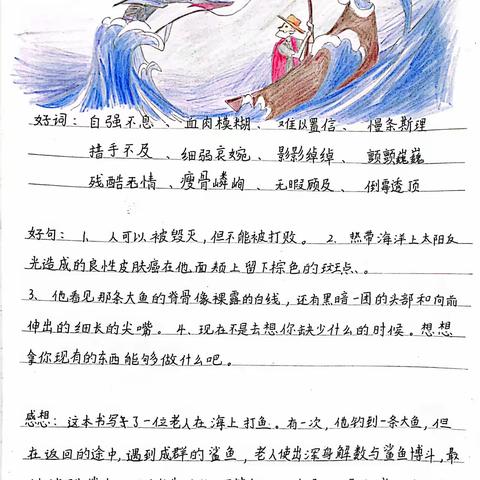 好词：自强不息、血肉模糊、难以置信、慢条斯理
措手不及、细弱哀婉、影影绰绰、颤颤巍巍
残酷无情、瘦骨嶙峋、无暇顾及、倒霉透顶
好句：1、人可以被毁灭，但不能被打败。2、热带海洋上太阳反
光造成的良性皮肤癌在他面颊上留下棕色的斑点、。
3、他看见那条大鱼的脊骨像裸露的白线，还有黑暗一团的头部和向前
伸出的细长的尖嘴。4、现在不是去想你缺少什么的时候。想想
拿你现有的东西能够做什么吧。
感想：这本书写了一位老人在海上打鱼。有一次，他钓到一条大鱼，但
在返回的途中，遇到成群的鲨鱼，老人使出浑身解数与鲨鱼博斗，最